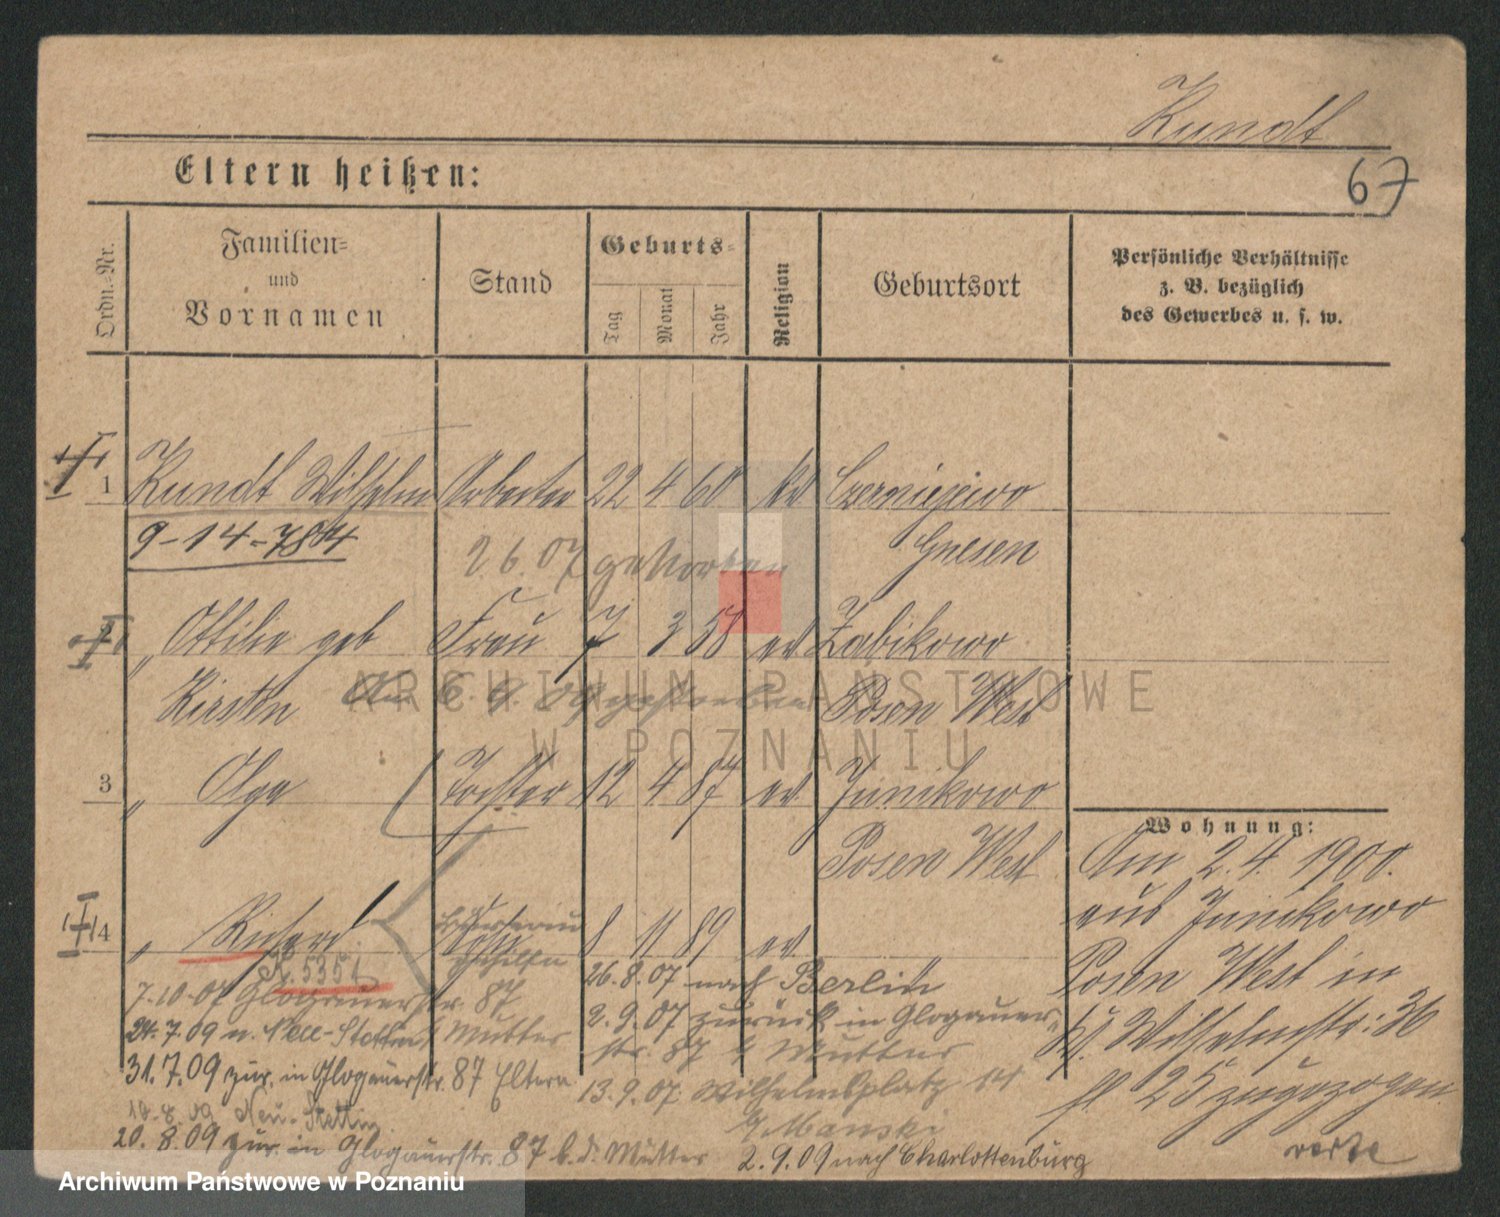 Kundt
67
Eltern heißen:
Ordn.-Nr.
Familien-
und
Vornamen
Stand
Geburts-
Tag
Monat
Jahr
Religion
Geburtsort
Persönliche Verhältnisse
z. B. bezüglich
des Gewerbes u. s. w.
1 Kundt Wilhelm Arbeiter 22 4 60 ev Czerniejewo
9-14-784 Gnesen
2.6.07 gestorben
" Ottilie geb Frau 7 3 58 ev Zabikowo
Kirsten Posen West
6.9.09 gestorben
3 " Olga Tochter 12 4 87 ev Junikowo
Posen West
Wohnung:
Am 2.4.1900.
aus Junikowo
Posen West in
Wilhelmstr: 36
25 zugezogen.
verte
4 " Richard 8 11 89 ev
K. 5351
7.10.07 Glogauerstr. 87
24.7.09 n. Neu-Stettin
Mutter
31.7.09 zur. in Glogauerstr. 87 Eltern
18.8.09 Neu-Stettin
20.8.09 zur. in Glogauerstr. 87 b. d. Mutter
26.8.07 nach Berlin
2.9.07 zurück in Glogauer-
str. 87 Mutter
13.9.07 Wilhelmsplatz 14
Manski
2.9.09 nach Charlottenburg
ARCHIWUM PAŃSTWOWE
W POZNANIU
Archiwum Państwowe w Poznaniu